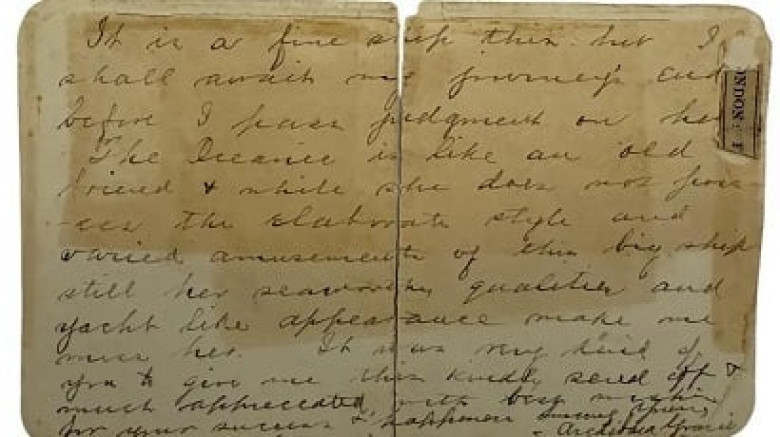 It is a fine ship this but I
shall await my journey's end
before I pass judgment on her
The Oceanic is like an old
friend & while she does not poss-
-ess the elaborate style and
varied amusements of this big ship
still her seaworthy qualities and
yacht like appearance make me
miss her. It was very kind of
you to give me this kindly send off &
much appreciated, with best wishes
for your success & happiness
Archibald Gracie
NDON : F